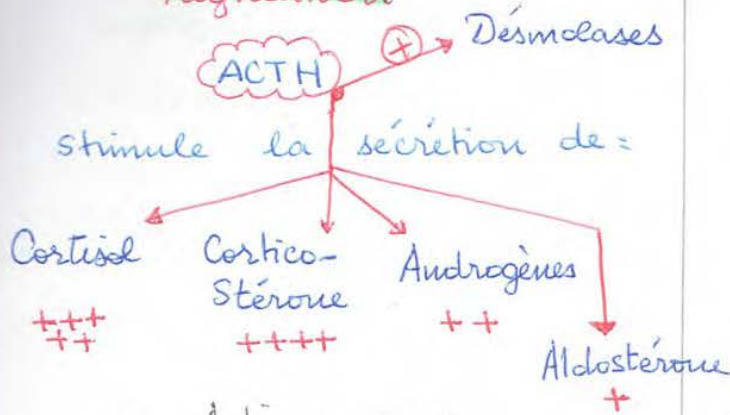 ACTH
+
Désmolases
stimule la sécrétion de =
Cortisol
+++
++
Cortico-
Stérone
++++
Androgènes
++
Aldostérone
+